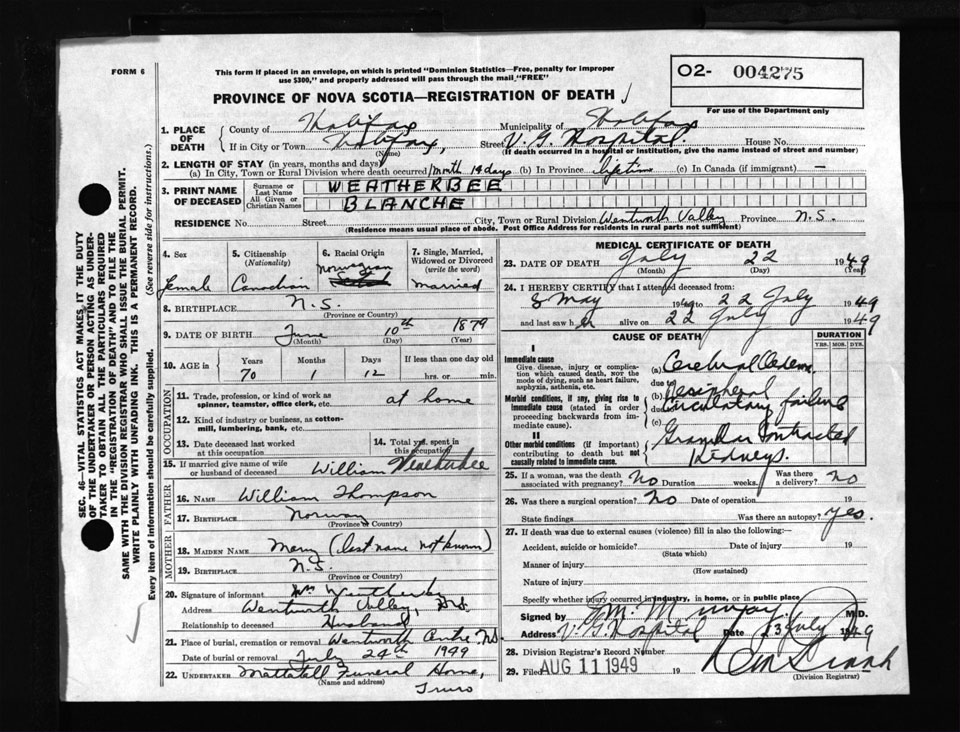 FORM 6
This form if placed in an envelope, on which is printed "Dominion Statistics—Free, penalty for improper
use $300," and properly addressed will pass through the mail "FREE"
O2- 004275
For use of the Department only
PROVINCE OF NOVA SCOTIA—REGISTRATION OF DEATH
1. PLACE OF DEATH
County of Halifax Municipality of Halifax
If in City or Town Halifax, Street V. G. Hospital House No.
(Name) (If death occurred in a hospital or institution, give the name instead of street and number)
2. LENGTH OF STAY (in years, months and days)
(a) In City, Town or Rural Division where death occurred 1 month 14 days (b) In Province lifetime (c) In Canada (if immigrant) —
3. PRINT NAME OF DECEASED
Surname or Last Name WEATHERBEE
All Given or Christian Names BLANCHE
RESIDENCE No. Street City, Town or Rural Division Wentworth Valley Province N.S.
(Residence means usual place of abode. Post Office Address for residents in rural parts not sufficient)
SEC. 46—VITAL STATISTICS ACT MAKES IT THE DUTY
OF THE UNDERTAKER OR PERSON ACTING AS UNDER-
TAKER TO OBTAIN ALL THE PARTICULARS REQUIRED
IN THE "REGISTRATION OF DEATH" AND TO FILE THE
SAME WITH THE DIVISION REGISTRAR WHO SHALL ISSUE THE BURIAL PERMIT.
WRITE PLAINLY WITH UNFADING INK. THIS IS A PERMANENT RECORD.
Every item of information should be carefully supplied. (See reverse side for instructions.)
4. Sex
female
5. Citizenship (Nationality)
Canadian
6. Racial Origin
Norwegian
7. Single, Married, Widowed or Divorced (write the word)
married
8. BIRTHPLACE N.S.
(Province or Country)
9. DATE OF BIRTH June 10th 1879
(Month) (Day) (Year)
10. AGE in Years Months Days If less than one day old
70 1 12 hrs. or min.
OCCUPATION
11. Trade, profession or kind of work as
spinner, teamster, office clerk, etc. at home
12. Kind of industry or business, as cotton-
mill, lumbering, bank, etc.
13. Date deceased last worked
at this occupation
14. Total yrs. spent in
this occupation
15. If married give name of wife
or husband of deceased William Weatherbee
FATHER
16. NAME William Thompson
17. BIRTHPLACE Norway
(Province or Country)
MOTHER
18. MAIDEN NAME Mary (last name not known)
19. BIRTHPLACE N.S.
(Province or Country)
20. Signature of informant Wm Weatherbee
Address Wentworth Valley, N.S.
Relationship to deceased Husband
21. Place of burial, cremation or removal Wentworth Centre N.S.
Date of burial or removal July 24th 1949
22. UNDERTAKER Mattatall Funeral Home,
(Name and address) Truro
MEDICAL CERTIFICATE OF DEATH
23. DATE OF DEATH July 22 1949
(Month) (Day) (Year)
24. I HEREBY CERTIFY that I attended deceased from
8 May 1949 to 22 July 1949
and last saw her alive on 22 July 1949
CAUSE OF DEATH
DURATION
YRS. MOS. DYS.
I
Immediate cause
Give disease, injury or complica-
tion which caused death, NOT the
mode of dying, such as heart failure,
asphyxia, asthenia, etc.
(a) Cerebral Oedema
due to
Morbid conditions, if any, giving rise to
immediate cause (stated in order
proceeding backwards from im-
mediate cause).
(b) Peripheral
due to circulatory failure
(c) Granular Contracted
Kidneys.
II
Other morbid conditions (if important)
contributing to death but not
causally related to immediate cause.
25. If a woman, was the death
associated with pregnancy? No Duration weeks. Was there
a delivery? No
26. Was there a surgical operation? No Date of operation 19
State findings Was there an autopsy? yes.
27. If death was due to external causes (violence) fill in also the following:—
Accident, suicide or homicide? Date of injury 19
(State which)
Manner of injury
(How sustained)
Nature of injury
Specify whether injury occurred in industry, in home, or in public place
Signed by M. Murray. M.D.
Address V. G. Hospital Date 23 July 1949
28. Division Registrar's Record Number
29. Filed AUG 11 1949 19
(Division Registrar)